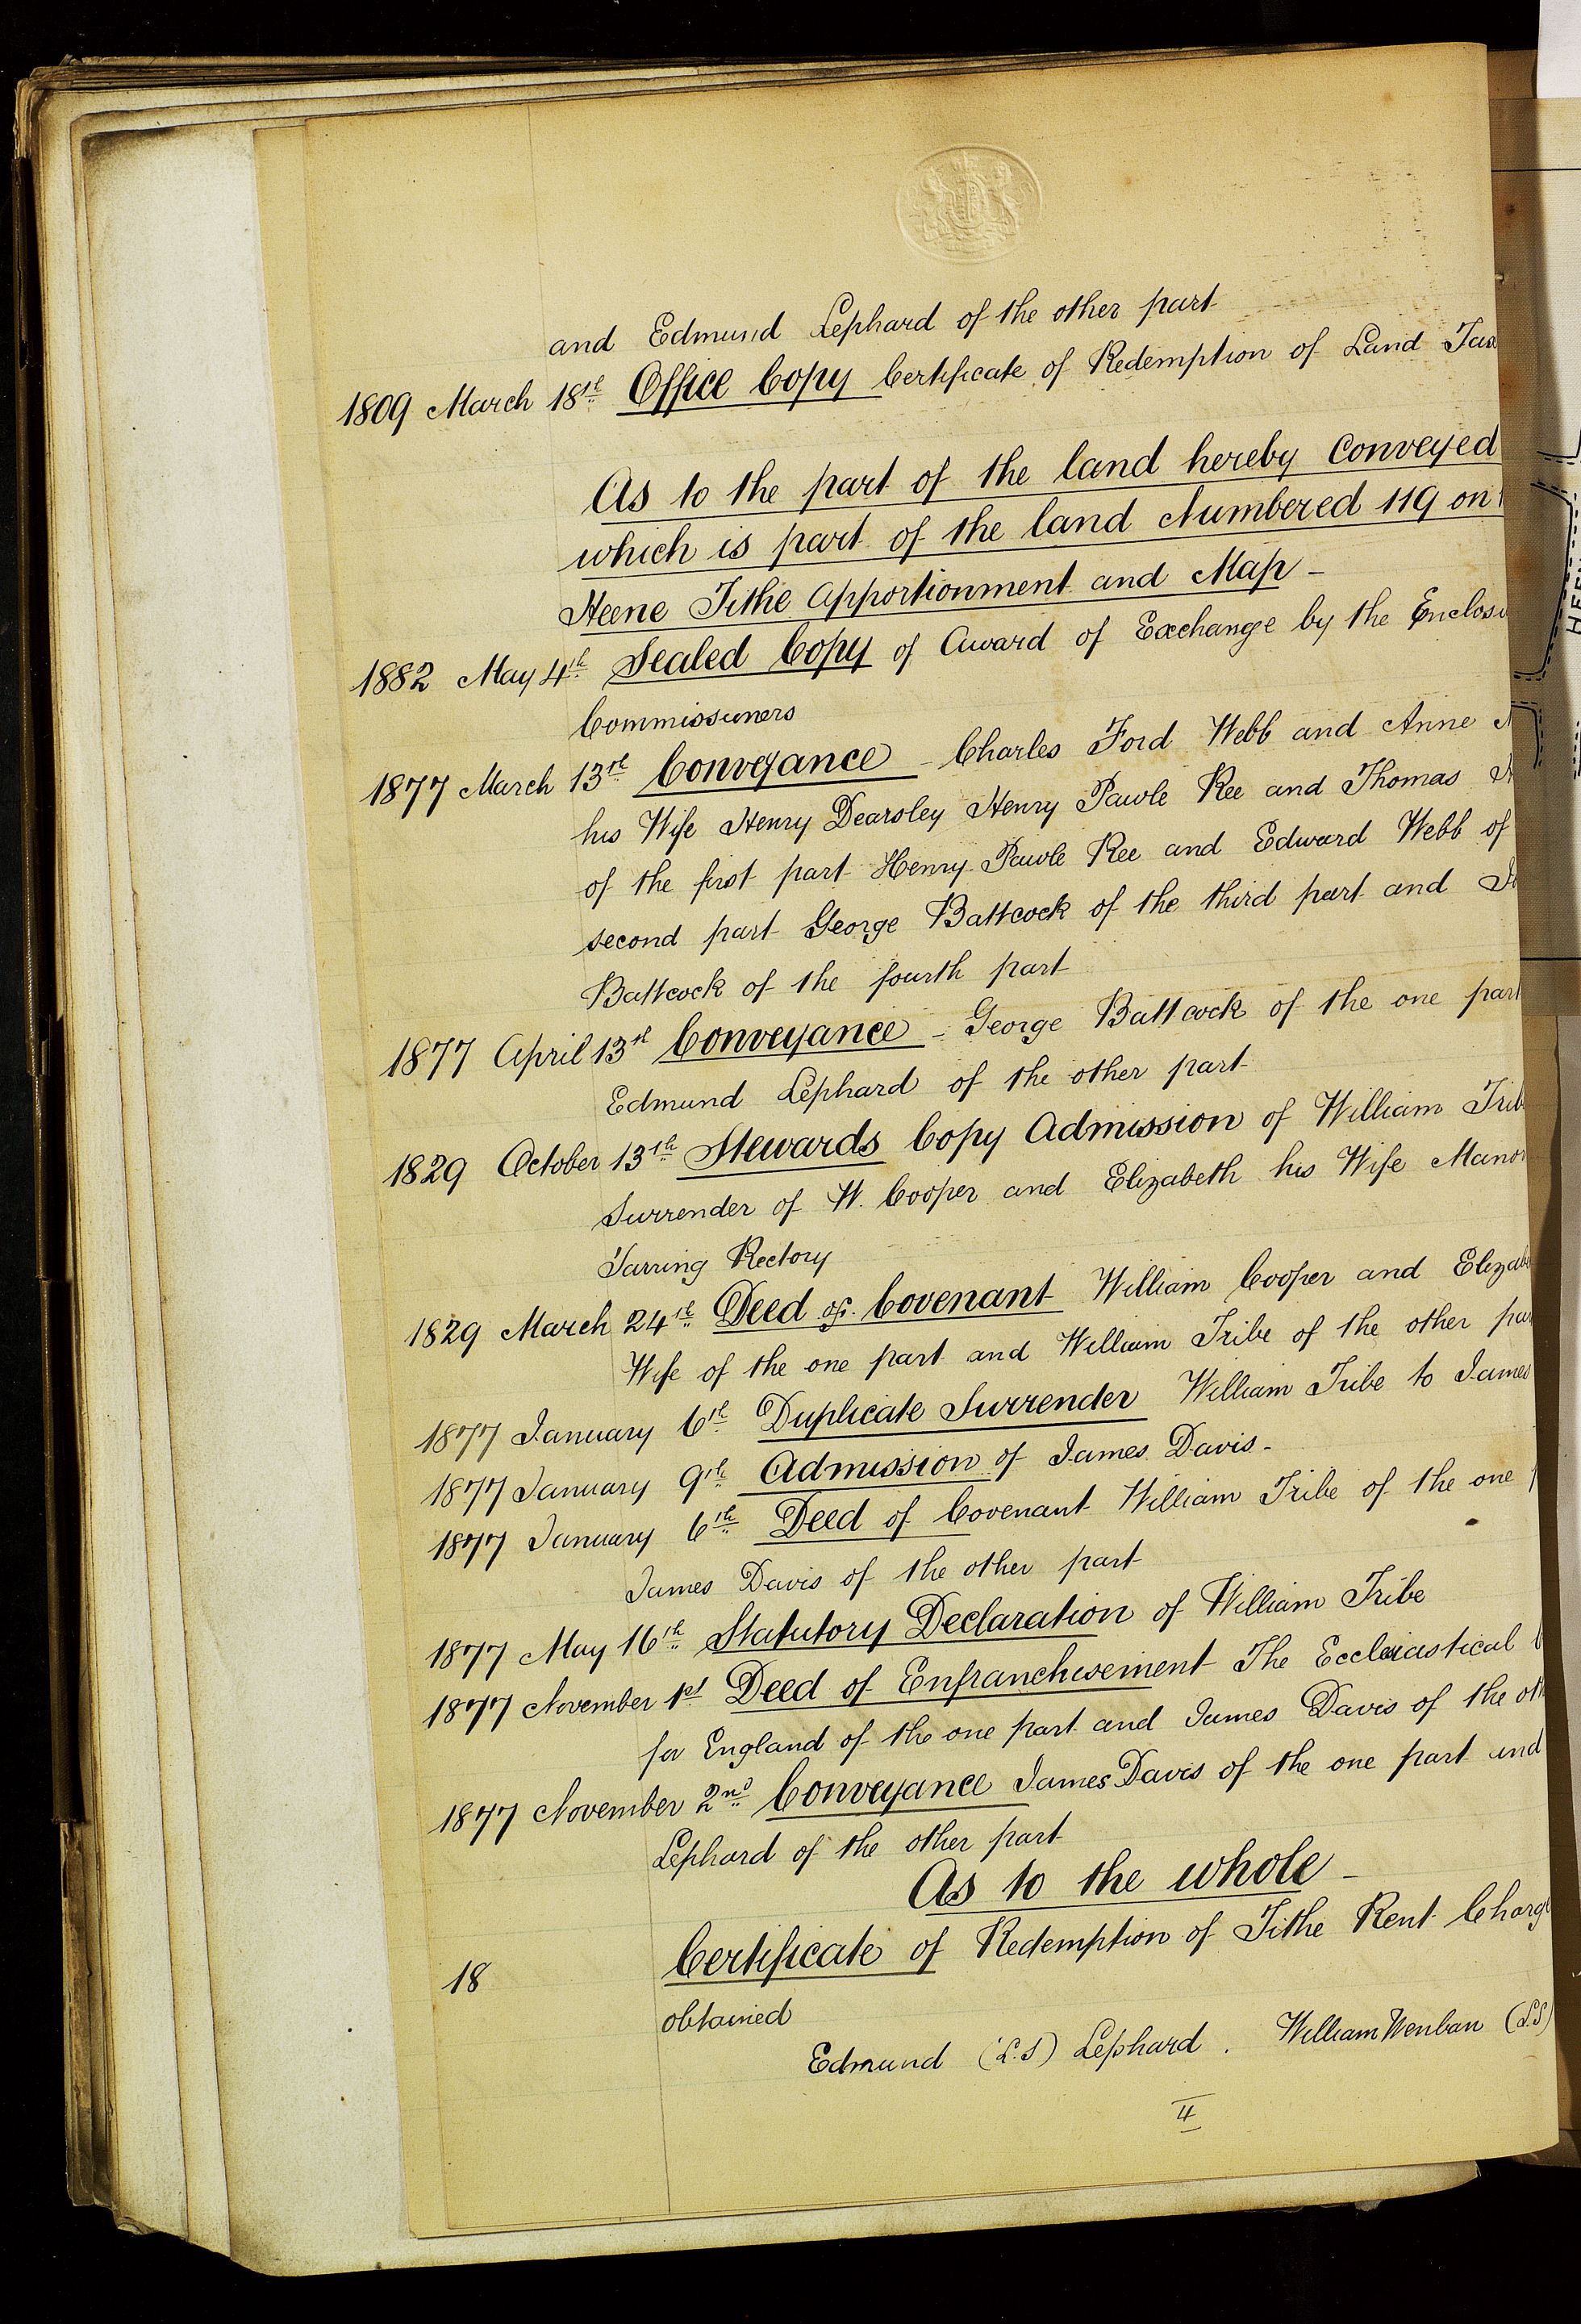 and Edmund Lephard of the other part
1809 March 18th Office Copy Certificate of Redemption of Land Tax
As to the part of the land hereby Conveyed
which is part of the land Numbered 119 on
Heene Tithe Apportionment and Map -
1882 May 4th Sealed Copy of Award of Exchange by the Enclosu
Commissioners
1877 March 13th Conveyance - Charles Ford Webb and Anne
his Wife Henry Dearsley Henry Pawle Ree and Thomas
of the first part Henry Pawle Ree and Edward Webb of
second part George Battcock of the third part and
Battcock of the fourth part
1877 April 13th Conveyance - George Battcock of the one part
Edmund Lephard of the other part
1829 October 13th Stewards Copy Admission of William Trib
Surrender of W. Cooper and Elizabeth his Wife Manor
Tarring Rectory
1829 March 24th Deed of Covenant William Cooper and Elizab
Wife of the one part and William Tribe of the other par
1877 January 6th Duplicate Surrender William Tribe to James
1877 January 9th Admission of James Davis -
1877 January 6th Deed of Covenant William Tribe of the one
James Davis of the other part
1877 May 16th Statutory Declaration of William Tribe
1877 November 1st Deed of Enfranchisement The Ecclesiastical
for England of the one part and James Davis of the oth
1877 November 2nd Conveyance James Davis of the one part and
Lephard of the other part
As to the whole -
18 Certificate of Redemption of Tithe Rent Charge
obtained
Edmund (L.S) Lephard . William Wenban (L.S)
4